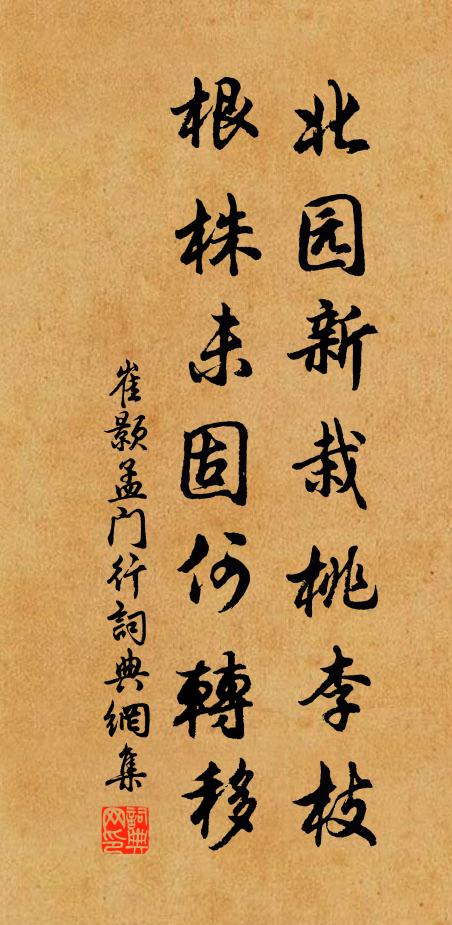 北园新栽桃李枝
根株未固何轉移
崔颢孟门行詞典網集
詞典网印